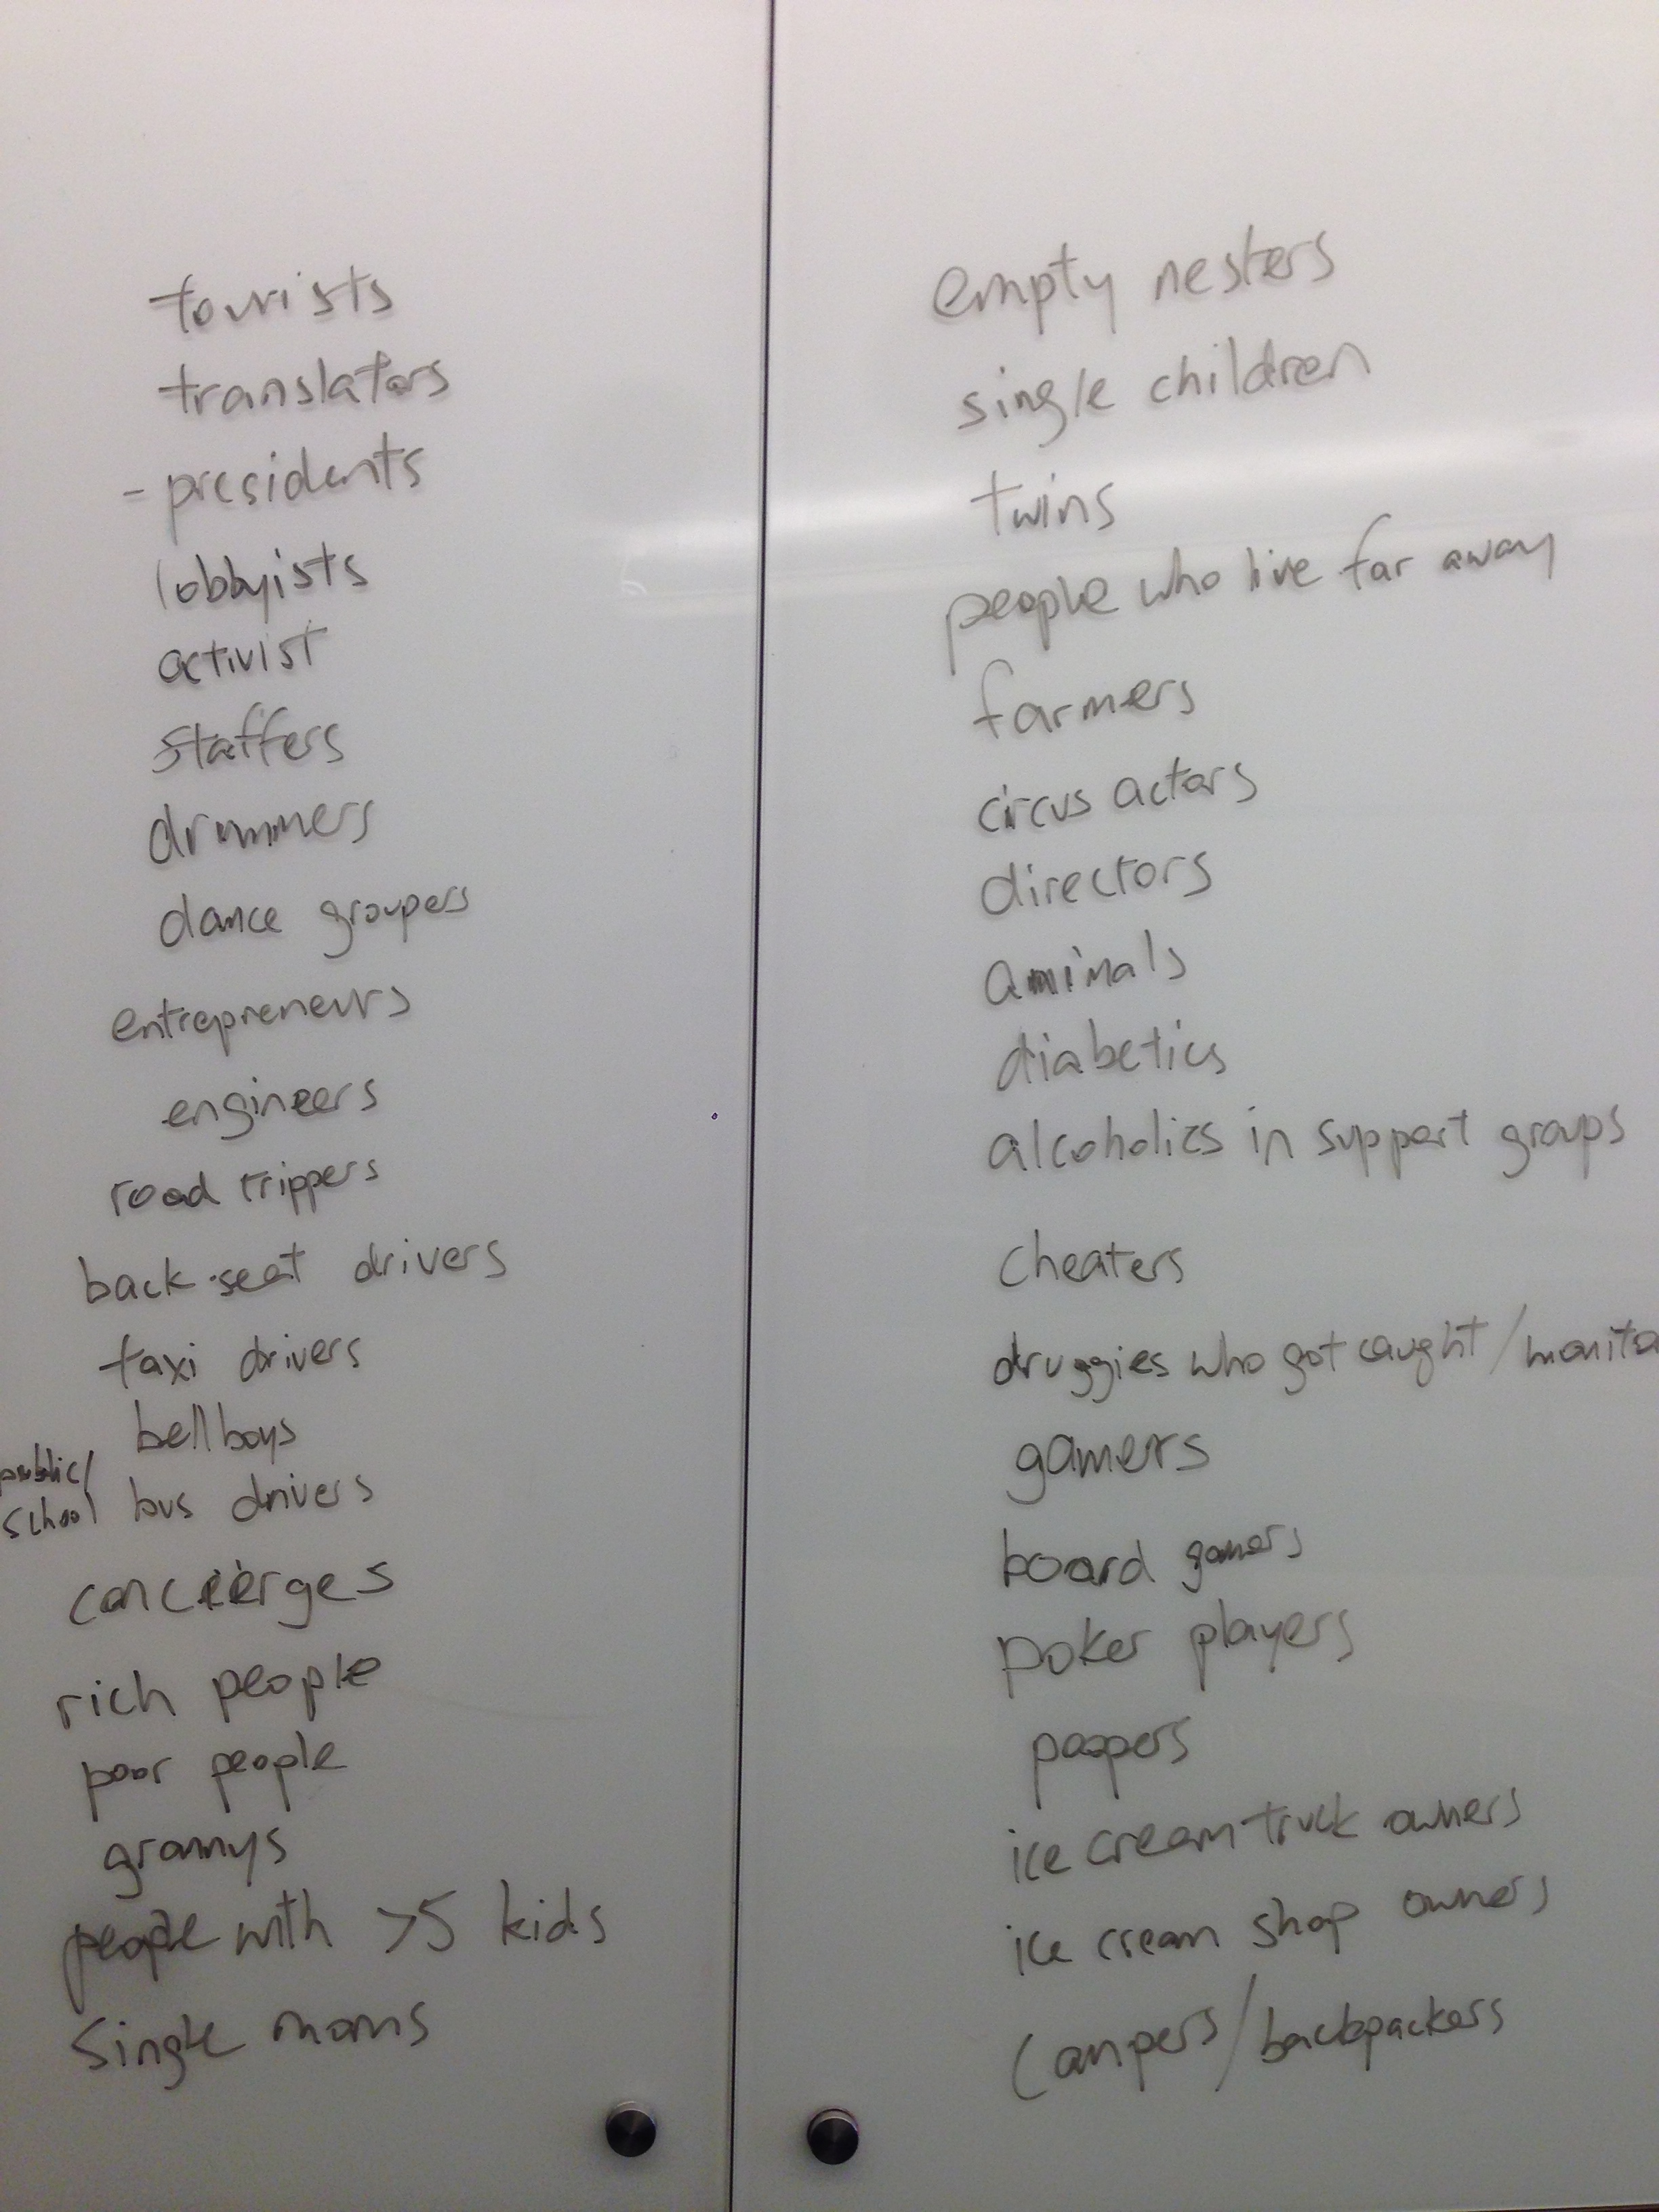 tourists
translators
- presidents
lobbyists
activist
staffers
drummers
dance groupers
entrepreneurs
engineers
road trippers
back-seat drivers
taxi drivers
bellboys
public/
school bus drivers
concierges
rich people
poor people
grannys
people with >5 kids
single moms
empty nesters
single children
twins
people who live far away
farmers
circus actors
directors
aminals
diabetics
alcoholics in support groups
cheaters
druggies who got caught/monito
gamers
board gamers
poker players
poopers
ice cream truck owners
ice cream shop owners
campers/backpackers